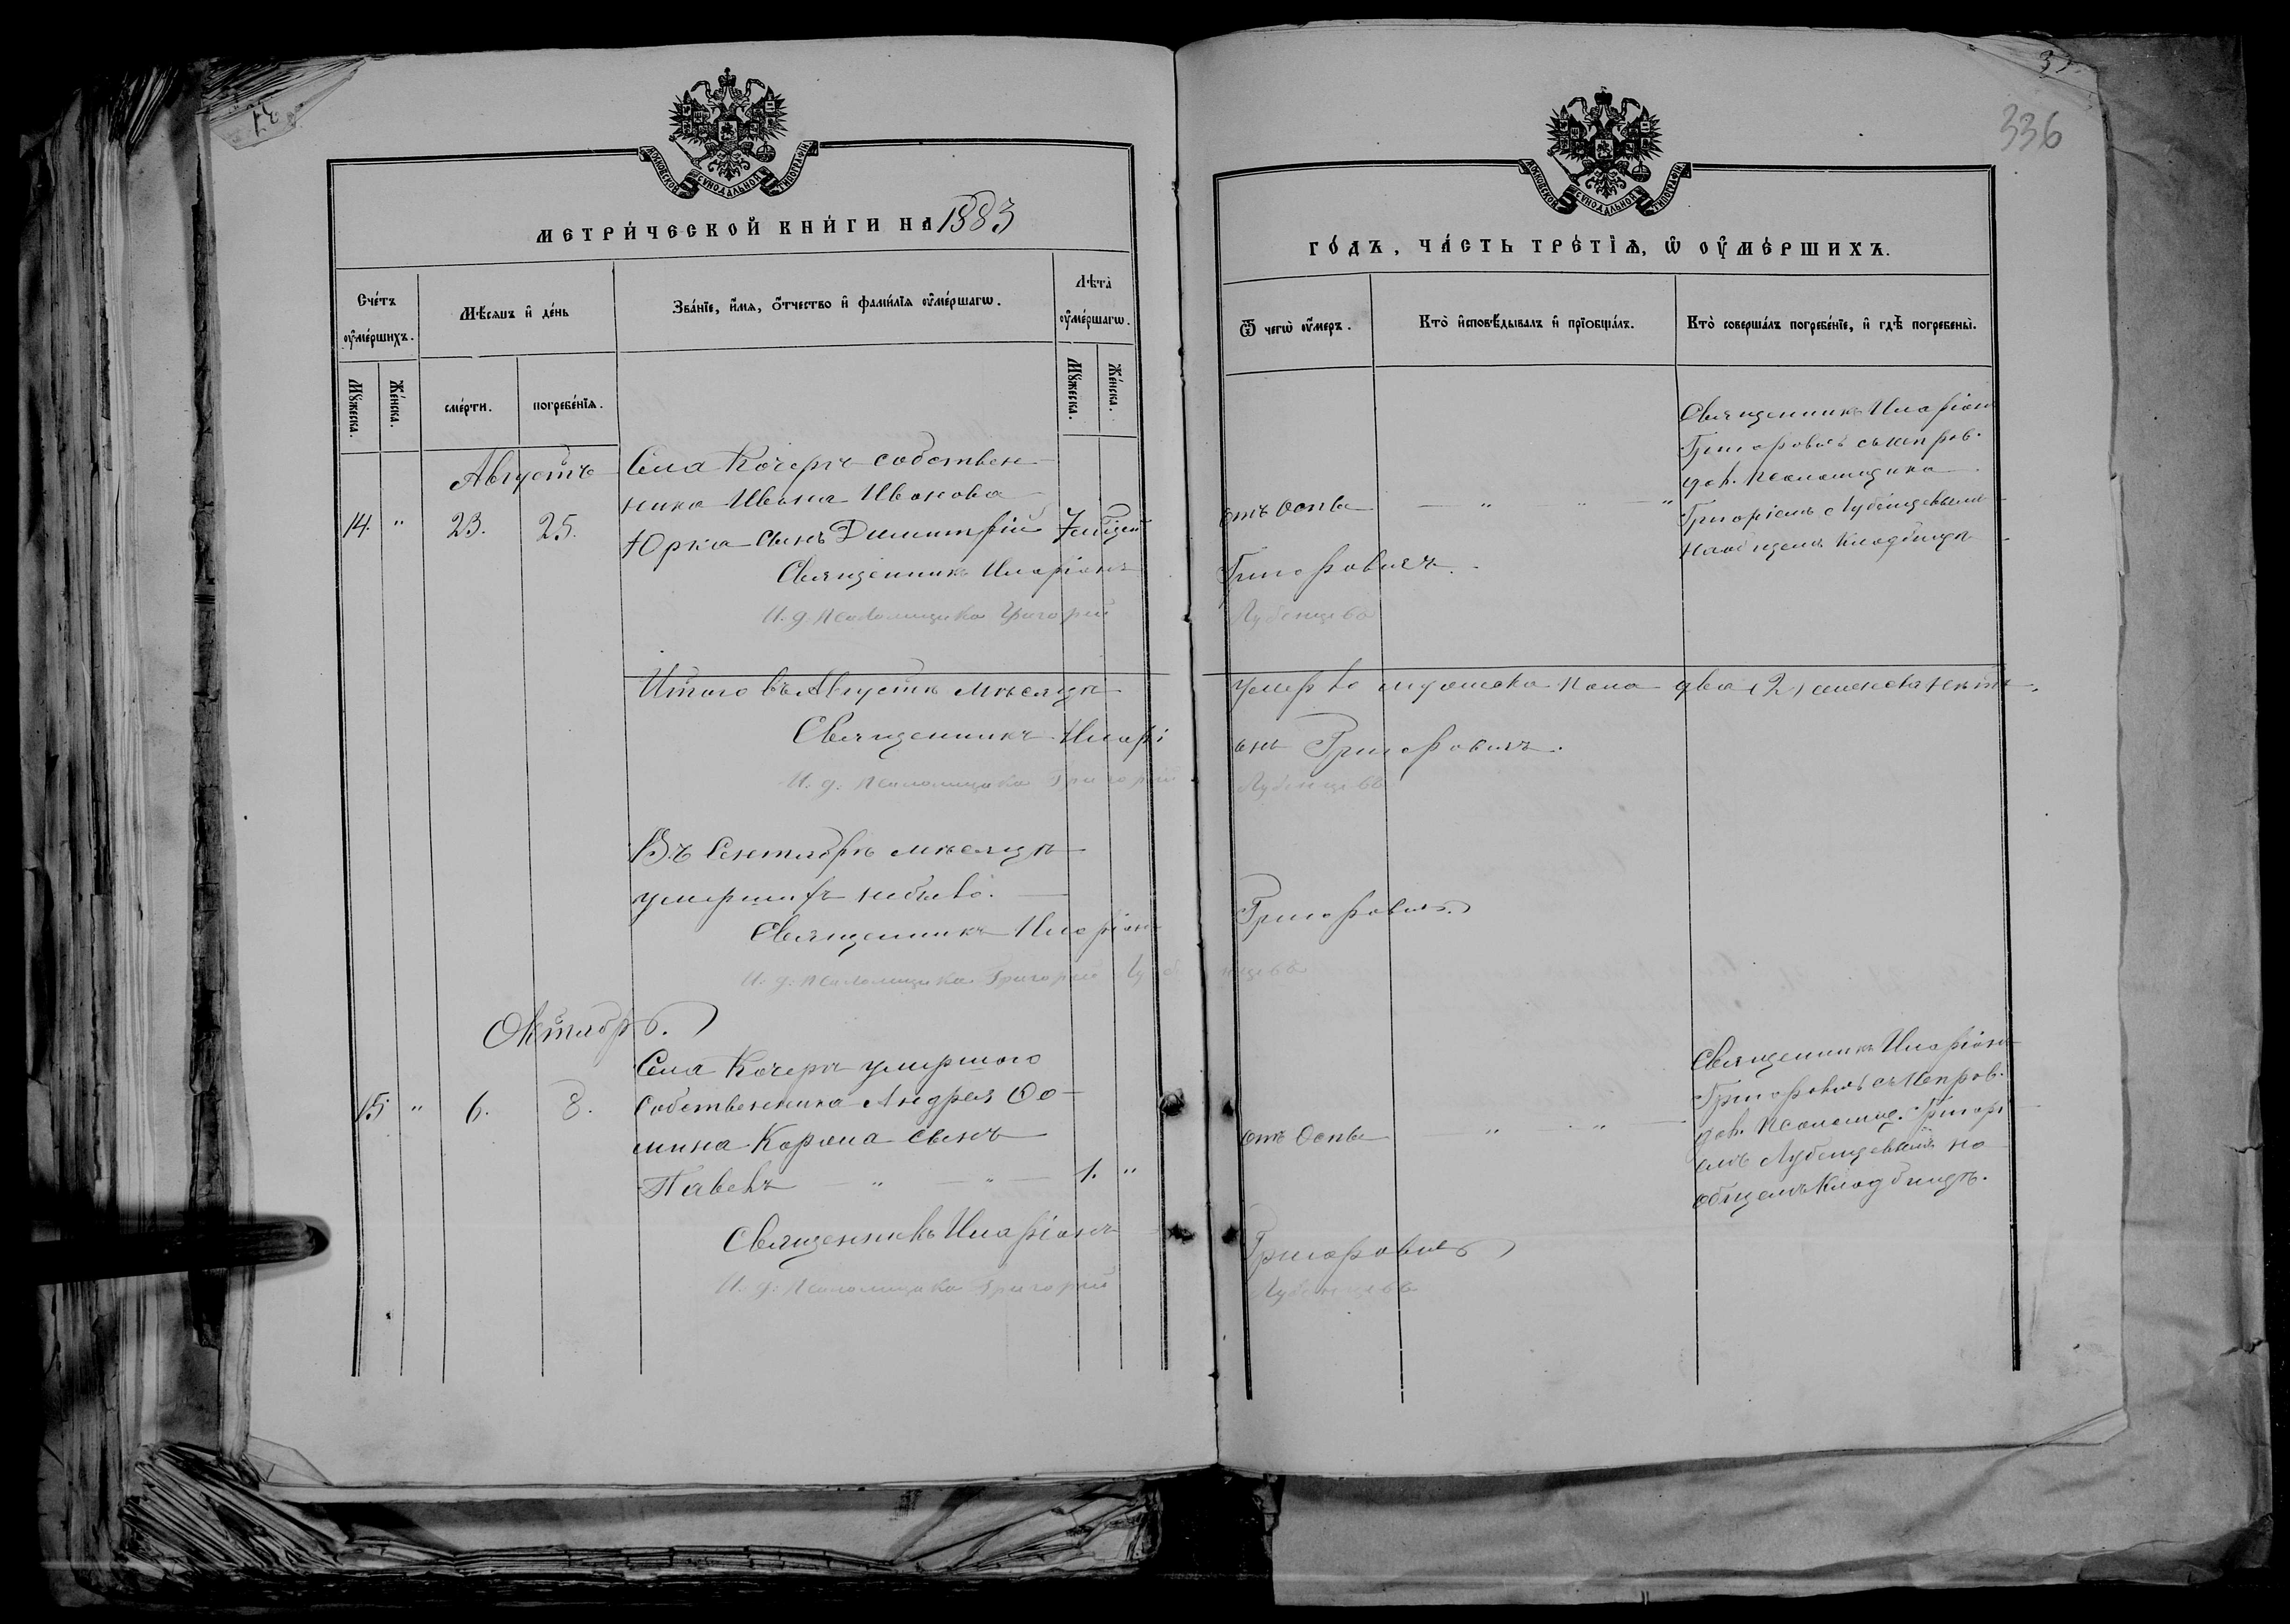 336
МОСКОВСКОЙ СѴНОДАЛЬНОЙ ТИПОГРАФІИ
МЕТРИ́ЧЕСКОЙ КНИ́ГИ НА 1883
Сче́тъ ᲂу҆ме́ршихъ.
Мѣ́сяцъ и҆ де́нь
Зва́нїе, и҆́мѧ, ѻ҆́тчество и҆ фами́лїѧ ᲂу҆ме́ршагѡ.
Лѣта̀ ᲂу҆ме́ршагѡ.
Мꙋ́жеска.
Же́нска.
сме́рти.
погребе́нїѧ.
Мꙋ́жеска.
Же́нска.
Августъ
Села Кочеръ собствен
ника Ивана Иванова
14. " 23. 25. Юрка сынъ Димитрій 7
Священникъ Иларіонъ
И. д. псаломщика Григорій
Итого въ Августѣ мѣсяцѣ
Священникъ Иларі
И. д. псаломщика Григорій
Въ Сентябрѣ мѣсяцѣ
умершихъ небыло.
Священникъ Иларіонъ
И. д. псаломщика Григорій Луб
Октябрь.
Села Кочеръ умершого
15 " 6. 8. собственника Андрея Ѳо
мина Корома сынъ
Павелъ — " — " — 1. "
Священникъ Иларіонъ
И. д. псаломщика Григорій
МОСКОВСКОЙ СѴНОДАЛЬНОЙ ТИПОГРАФІИ
ГО́ДЪ, ЧА́СТЬ ТРЕ́ТЇѦ, Ѡ҆ ОУ҆МЕ́РШИХЪ.
Ѿ чегѡ̀ ᲂу҆́меръ.
Кто̀ и҆сповѣ́дывалъ и҆ прїобща́лъ.
Кто̀ соверша́лъ погребе́нїе, и҆ гдѣ̀ погребены̀.
Священникъ Иларіонъ
Григоровичъ съ испров.
дол. псаломщика
отъ Оспы — " " — " Григоріемъ Лубенцевымъ
на общемъ кладбищѣ
Григоровичъ.
Лубенцевъ
умерло мужеска пола два (2) женска нѣтъ.
онъ Григоровичъ.
Лубенцевъ
Григоровичъ
нцевъ
Священникъ Иларіонъ
Григоровичъ съ испров.
дол. псаломщ. Григорі
отъ Оспы " — " — емъ Лубенцевымъ на
общемъ кладбищѣ.
Григоровичъ
Лубенцевъ